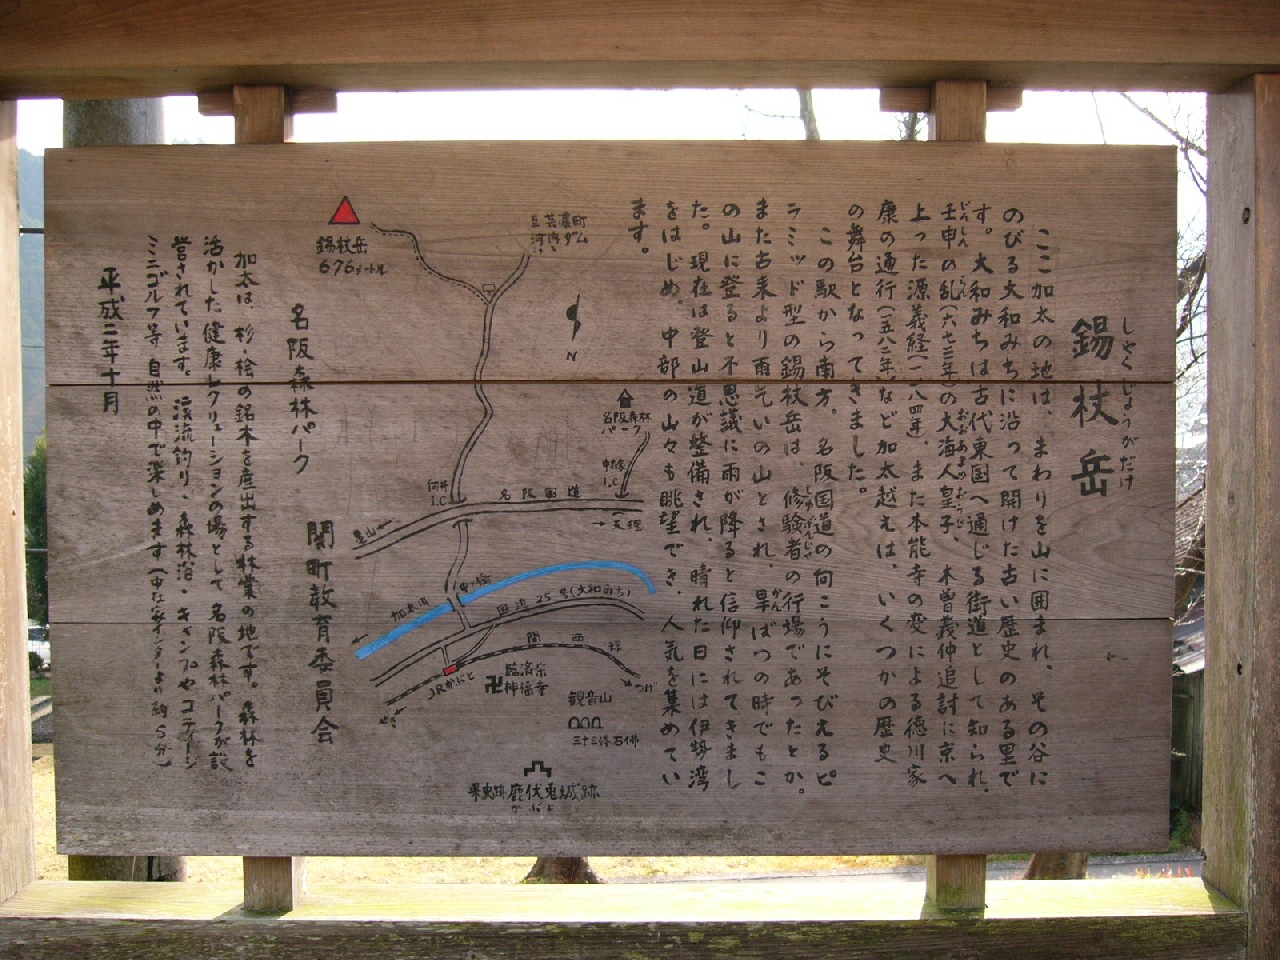 しゃくじょうがだけ
錫杖岳
ここ加太の地は、まわりを山に囲まれ、その谷に
のびる大和みちに沿って開けた古い歴史のある里で
す。大和みちは古代東国へ通じる街道として知られ、
壬申の乱(六七三年)の大海人皇子、木曽義仲追討に京へ
じんしん らん おおあまのおうじ
上った源義経(一一八四年)、また本能寺の変による徳川家
康の通行(一五八二年)など加太越えは、いくつかの歴史
の舞台となってきました。
この駅から南方。名阪国道の向こうにそびえるピ
ラミッド型の錫杖岳は、修験者の行場であったとか。
しゅげんじゃ
また古来より雨乞いの山とされ、旱ばつの時でもこ
かん
の山に登ると不思議に雨が降ると信仰されてきまし
た。現在は登山道が整備され、晴れた日には伊勢湾
をはじめ。中部の山々も眺望でき、人気を集めてい
ます。
錫杖岳
676メートル
至芸濃町
河内ダム
N
名阪森林
パーク
向井
I.C
I.C
名阪国道
亀山
天理
加太川
国道25号(大和みち)
関西線
JRかぶと
つげ
せき
臨済宗
卍神福寺
観音山
三十三体石佛
県史跡鹿伏兎城跡
かぶと
名阪森林パーク
加太は 杉・桧の銘木を産出する林業の地です。森林を
活かした健康レクリェーションの場として 名阪森林パークが設
営されています。渓流釣り、森林浴・キャンプやコテージ
ミニゴルフ等 自然の中で楽しめます(中在家インターより約5分)
関町教育委員会
平成二年十月